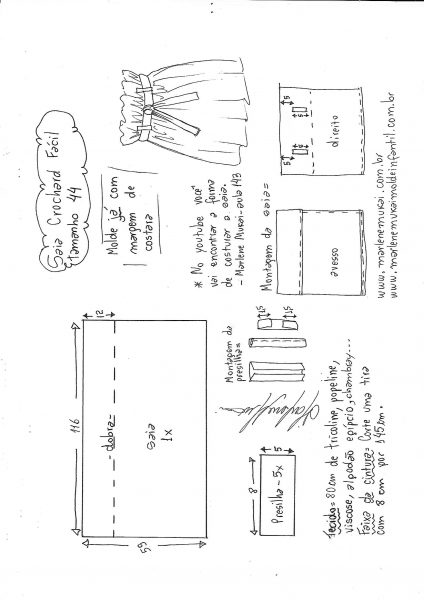 Saia Crochard Fácil
tamanho 44
Molde já com
margem de
costura
* No youtube você
vai encontrar a forma
de costurar a saia.
- Marlene Mukai - aula 143
Montagem da saia =
5
5
5
5
direito
avesso
www.marlenemukai.com.br
www.marlenemukaimoldeinfantil.com.br
116
12
dobra =
saia
1x
59
Montagem da
presilha =
1,5
1,5
8
5
Presilha - 5x
Tecido = 80cm de tricoline, popeline,
viscose, algodão egípcio, chambray....
Faixa de cintura = Corte uma tira
com 8 cm por 145cm.